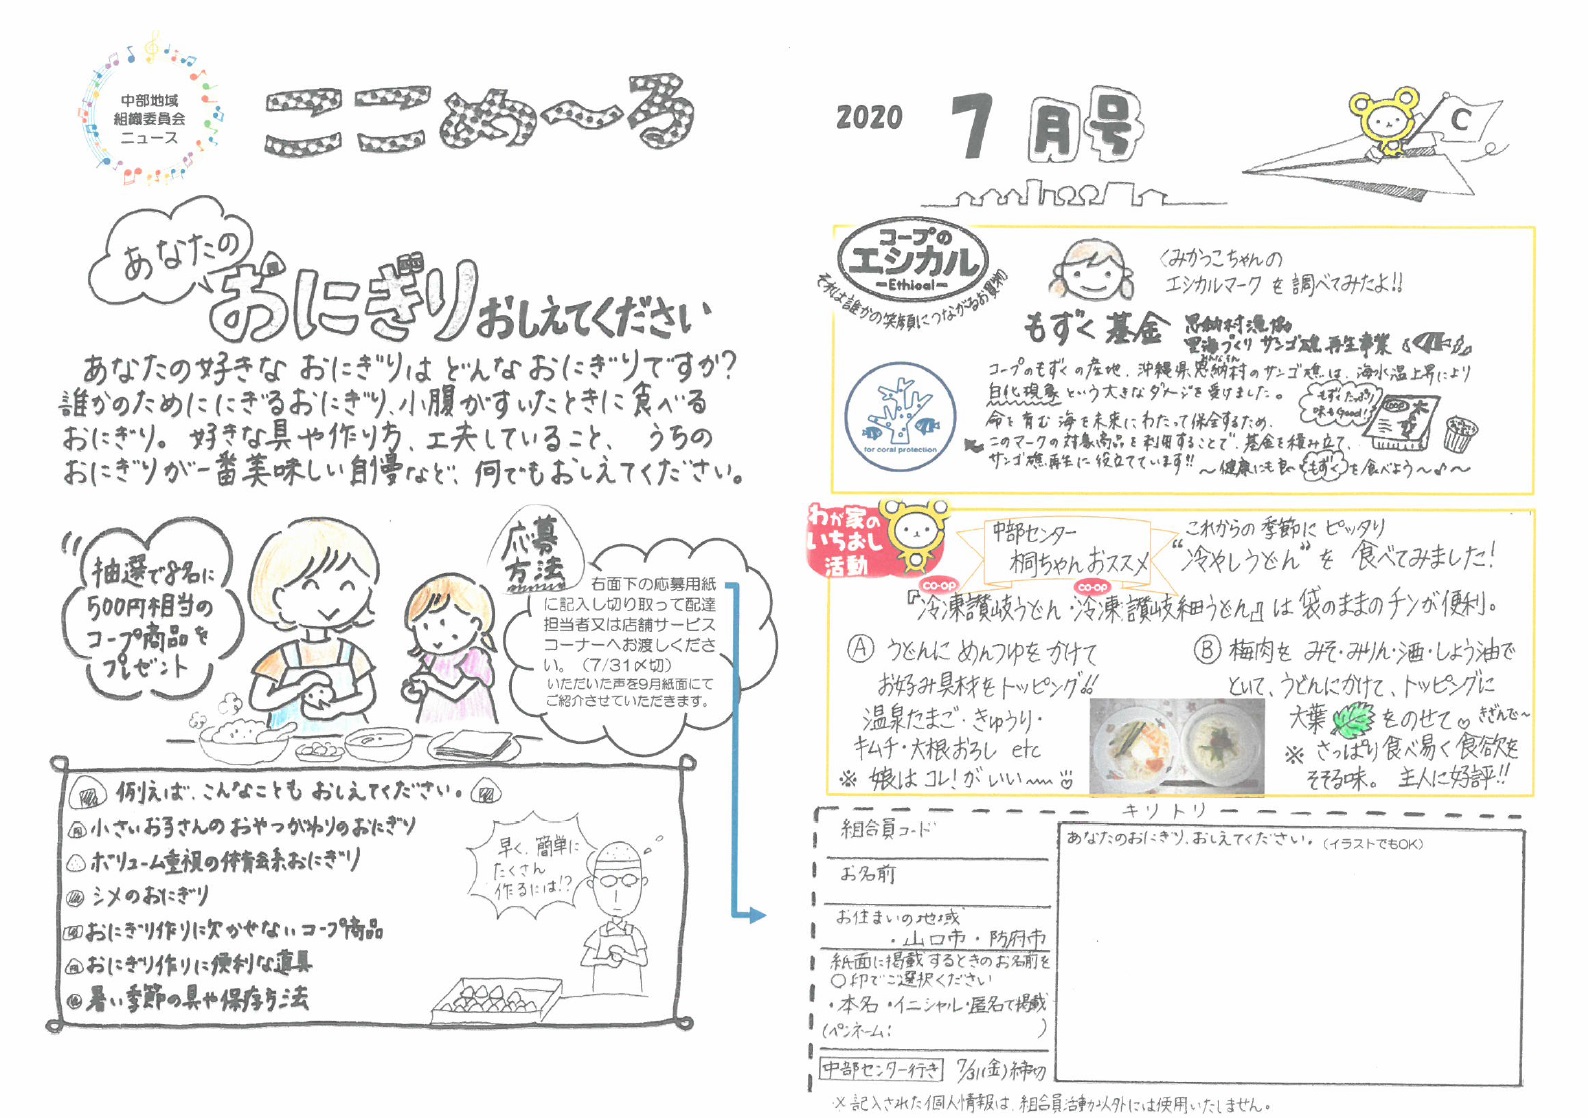 中部地域
組織委員会
ニュース
ここめ～る
2020 7月号
C
あなたの
おにぎり おしえてください
あなたの好きな おにぎりは どんなおにぎりですか?
誰かのためににぎるおにぎり、小腹がすいたときに食べる
おにぎり。好きな具や作り方、工夫していること、うちの
おにぎりが一番美味しい自慢など、何でもおしえてください。
抽選で8名に
500円相当の
コープ商品を
プレゼント
応募
方法
右面下の応募用紙
に記入し切り取って配達
担当者又は店舗サービス
コーナーへお渡しくださ
い。（7/31〆切）
いただいた声を9月紙面にて
ご紹介させていただきます。
例えば、こんなことも おしえてください。
小さいお子さんの おやつがわりのおにぎり
ボリューム重視の体育会系おにぎり
シメのおにぎり
おにぎり作りに欠かせないコープ商品
おにぎり作りに便利な道具
暑い季節の具や保存方法
早く、簡単に
たくさん
作るには!?
コープの
エシカル
-Ethical-
それは誰かの笑顔につながるお買物
くみかっこちゃんの
エシカルマーク を 調べてみたよ!!
もずく基金 恩納村漁協
里海づくり サンゴ礁 再生事業
コープのもずくの産地、沖縄県恩納村のサンゴ礁は、海水温上昇により
白化現象 という大きなダメージを受けました。
命を育む海を未来にわたって保全するため、
このマークの対象商品を利用することで、基金を積み立て、
サンゴ礁再生に役立てています!!
もずくたっぷり
味もGood!
～健康にも良いもずくを食べよう～♪～
for coral protection
わが家の
いちおし
活動
中部センター
桐ちゃんおススメ
これからの季節に ピッタリ
"冷やしうどん" を 食べてみました!
CO-OP CO-OP
『冷凍讃岐うどん・冷凍讃岐細うどん』は 袋のままのチンが便利。
Ⓐ うどんに めんつゆを かけて
お好み具材をトッピング!!
温泉たまご・きゅうり・
キムチ・大根おろし etc
※ 娘は コレ!が いい～
Ⓑ 梅肉を みそ・みりん・酒・しょう油で
といて、うどんにかけて、トッピングに
大葉 をのせて♡ きざんで～
※ さっぱり食べ易く食欲を
そそる味。 主人に好評!!
キリトリ
組合員コード
お名前
お住まいの地域
・山口市・防府市
紙面に掲載するときのお名前を
○印でご選択ください
・本名・イニシャル・匿名で掲載
(ペンネーム: )
中部センター行き 7/31(金)締切
あなたのおにぎり、おしえてください。(イラストでもOK)
※記入された個人情報は、組合員活動以外には使用いたしません。